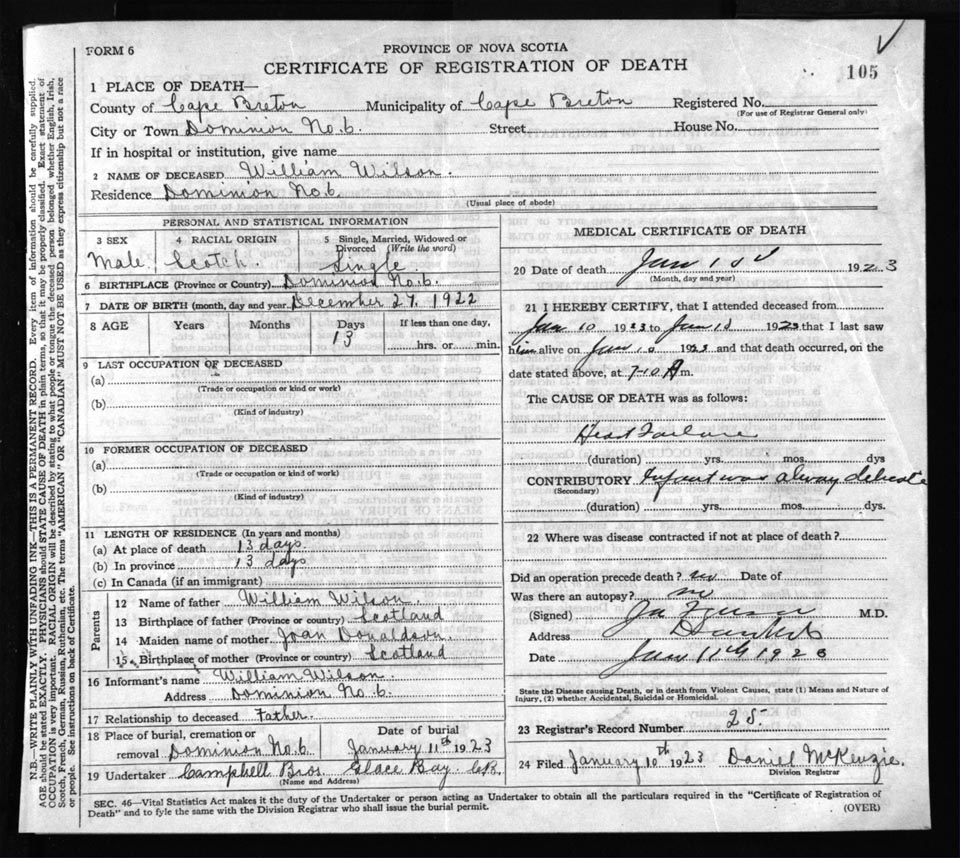 FORM 6
PROVINCE OF NOVA SCOTIA
CERTIFICATE OF REGISTRATION OF DEATH
105
1 PLACE OF DEATH—
County of Cape Breton Municipality of Cape Breton Registered No.
(For use of Registrar General only)
City or Town Dominion No. 6. Street House No.
If in hospital or institution, give name
2 NAME OF DECEASED William Wilson.
Residence Dominion No. 6.
(Usual place of abode)
PERSONAL AND STATISTICAL INFORMATION
3 SEX 4 RACIAL ORIGIN 5 Single, Married, Widowed or Divorced (Write the word)
Male. Scotch. Single.
6 BIRTHPLACE (Province or Country) Dominion No. 6.
7 DATE OF BIRTH (month, day and year) December 27, 1922
8 AGE Years Months Days If less than one day,
13 hrs. or min.
9 LAST OCCUPATION OF DECEASED
(a)
(Trade or occupation or kind or work)
(b)
(Kind of industry)
10 FORMER OCCUPATION OF DECEASED
(a)
(Trade or occupation or kind of work)
(b)
(Kind of industry)
11 LENGTH OF RESIDENCE (In years and months)
(a) At place of death 13 days
(b) In province 13 days
(c) In Canada (if an immigrant)
Parents
12 Name of father William Wilson.
13 Birthplace of father (Province or country) Scotland
14 Maiden name of mother Joan Donaldson.
15 Birthplace of mother (Province or country) Scotland
16 Informant's name William Wilson.
Address Dominion No. 6.
17 Relationship to deceased Father.
18 Place of burial, cremation or removal Dominion No. 6 Date of burial January 11th 1923
19 Undertaker Campbell Bros. Glace Bay C.B.
(Name and Address)
MEDICAL CERTIFICATE OF DEATH
20 Date of death Jan 1923
(Month, day and year)
21 I HEREBY CERTIFY, that I attended deceased from
Jan 10 1923 to Jan 10 1923 that I last saw
him alive on Jan 10 1923 and that death occurred, on the
date stated above, at 7-10 A m.
The CAUSE OF DEATH was as follows:
Heart Failure
(duration) yrs. mos. dys
CONTRIBUTORY Infant was always delicate
(Secondary)
(duration) yrs. mos. dys.
22 Where was disease contracted if not at place of death?
Did an operation precede death? no Date of
Was there an autopsy? no
(Signed) M.D.
Address
Date Jan 11th 1923
State the Disease causing Death, or in death from Violent Causes, state (1) Means and Nature of
Injury, (2) whether Accidental, Suicidal or Homicidal.
23 Registrar's Record Number 25.
24 Filed January 10th 1923 Daniel McKenzie.
Division Registrar
SEC. 46—Vital Statistics Act makes it the duty of the Undertaker or person acting as Undertaker to obtain all the particulars required in the "Certificate of Registration of
Death" and to fyle the same with the Division Registrar who shall issue the burial permit.
(OVER)
N.B.—WRITE PLAINLY WITH UNFADING INK—THIS IS A PERMANENT RECORD. Every item of information should be carefully supplied.
AGE should be stated EXACTLY. PHYSICIANS should STATE CAUSE OF DEATH in plain terms, so that it may be properly classified. Exact statement of
OCCUPATION is very important. RACIAL ORIGIN will be described by stating to what people or tongue the deceased person belonged whether English, Irish,
Scotch, French, German, Russian, Ruthenian, etc. The terms "AMERICAN" or "CANADIAN" MUST NOT BE USED as they express citizenship but not a race
or people. See instructions on back of Certificate.